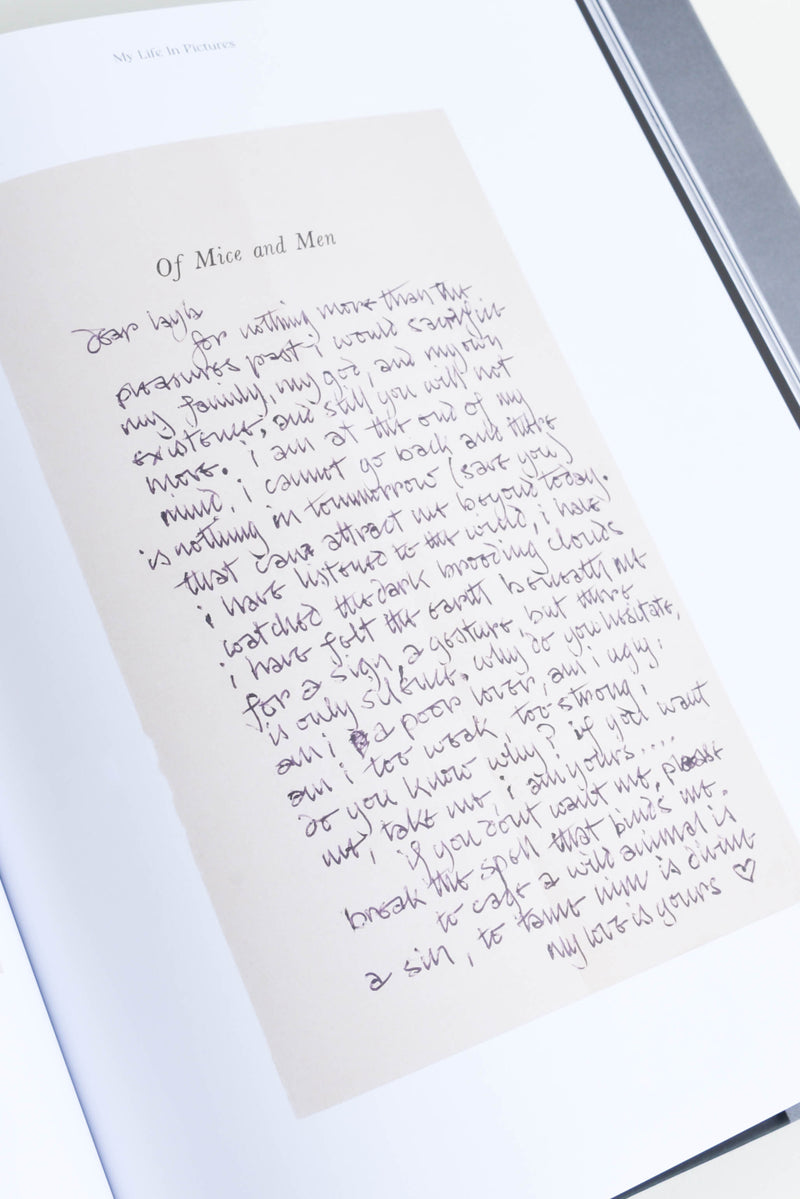 My Life In Pictures
Of Mice and Men
dear layla
for nothing more than the
pleasures past i would sacrifice
my family, my god, and my own
existence, and still you will not
move. i am at the end of my
mind, i cannot go back and there
is nothing in tommorrow (save you)
that can attract me beyond today.
i have listened to the wind, i have
watched the dark brooding clouds
i have felt the earth beneath me
for a sign, a gesture, but there
is only silence. why do you hesitate,
am i a poor lover, am i ugly,
am i too weak, too strong,
do you know why? if you want
me, take me, i am yours....
if you dont want me, please
break the spell that binds me.
to cage a wild animal is
a sin, to tame him is divine
my love is yours ♡